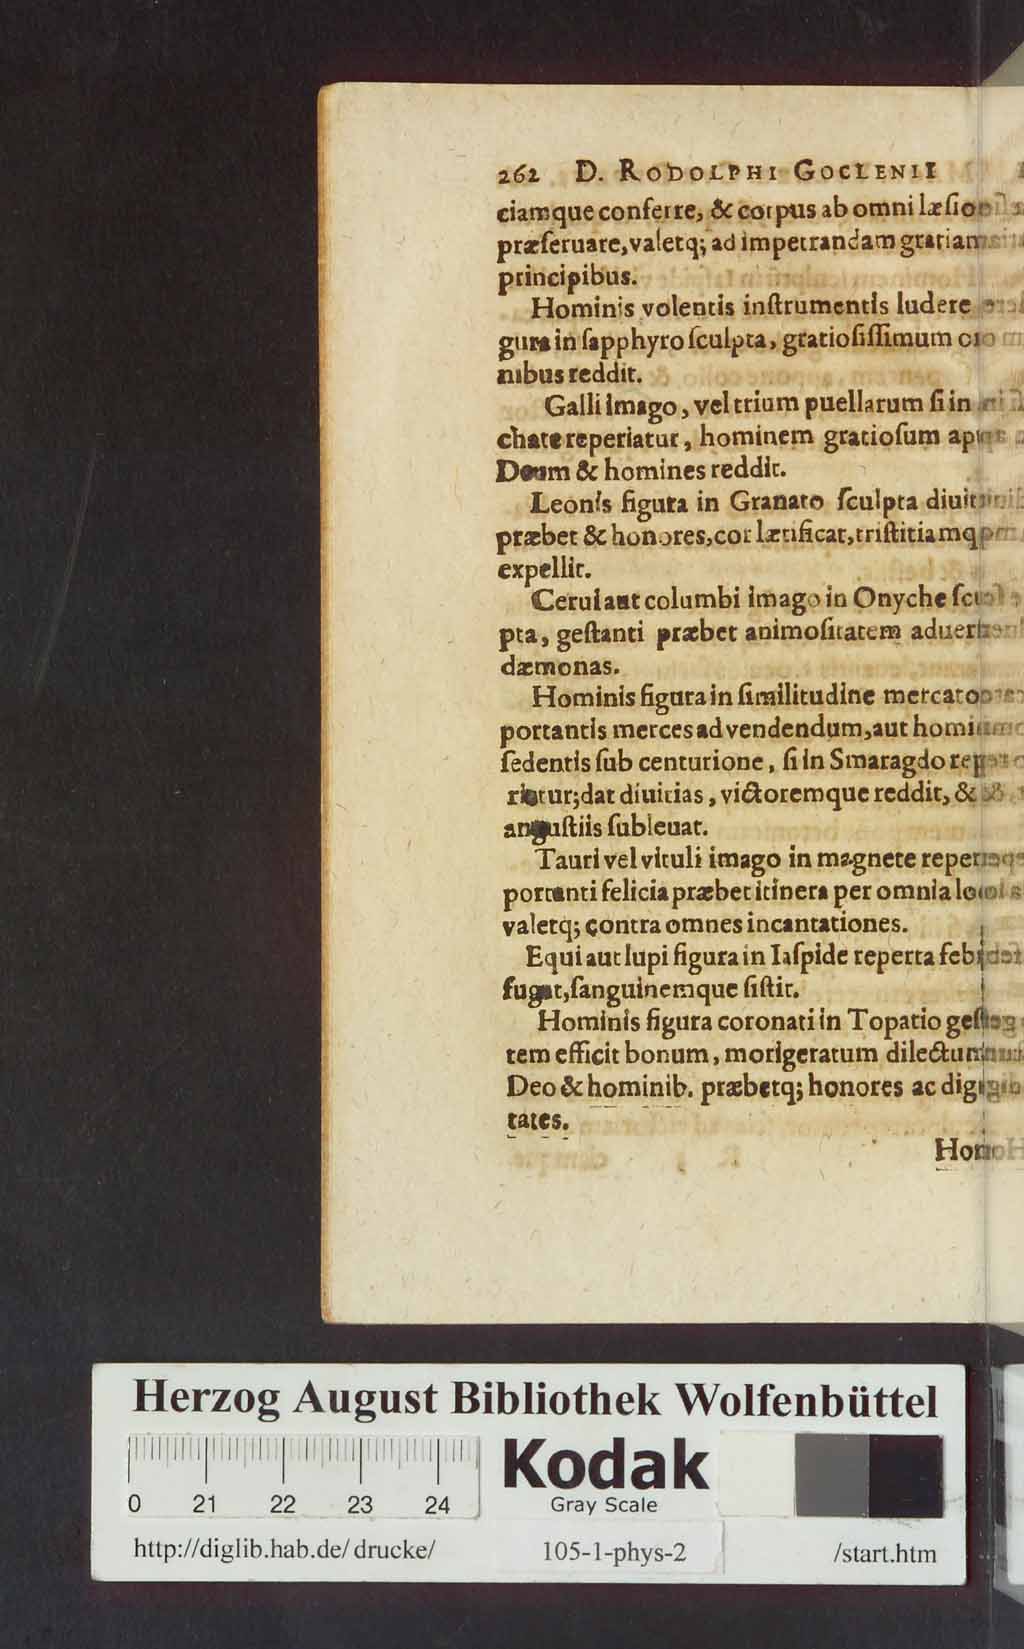 262 D. RODOLPHI GOCLENII
ciamque conferre, & corpus ab omni læsio
præseruare, valetq; ad impetrandam gratiam
principibus.
Hominis volentis instrumentis ludere
gura in sapphyro sculpta, gratiosissimum
nibus reddit.
Galli imago, vel trium puellarum si in
chate reperiatur, hominem gratiosum
Deum & homines reddit.
Leonis figura in Granato sculpta diuit
præbet & honores, cor lætificat, tristitiamq
expellit.
Cerui aut columbi imago in Onyche scu
pta, gestanti præbet animositatem aduer
dæmonas.
Hominis figura in similitudine mercato
portantis merces ad vendendum, aut homi
sedentis sub centurione, si in Smaragdo rep
riatur; dat diuitias, victoremque reddit, &
angustiis subleuat.
Tauri vel vituli imago in magnete reper
portanti felicia præbet itinera per omnia lo
valetq; contra omnes incantationes.
Equi aut lupi figura in Iaspide reperta feb
fugat, sanguinemque sistit.
Hominis figura coronati in Topatio ges
tem efficit bonum, morigeratum dilectum
Deo & hominib. præbetq; honores ac dig
tates.
Ho
Herzog August Bibliothek Wolfenbüttel
0 21 22 23 24
Kodak
Gray Scale
http://diglib.hab.de/drucke/ 105-1-phys-2 /start.htm